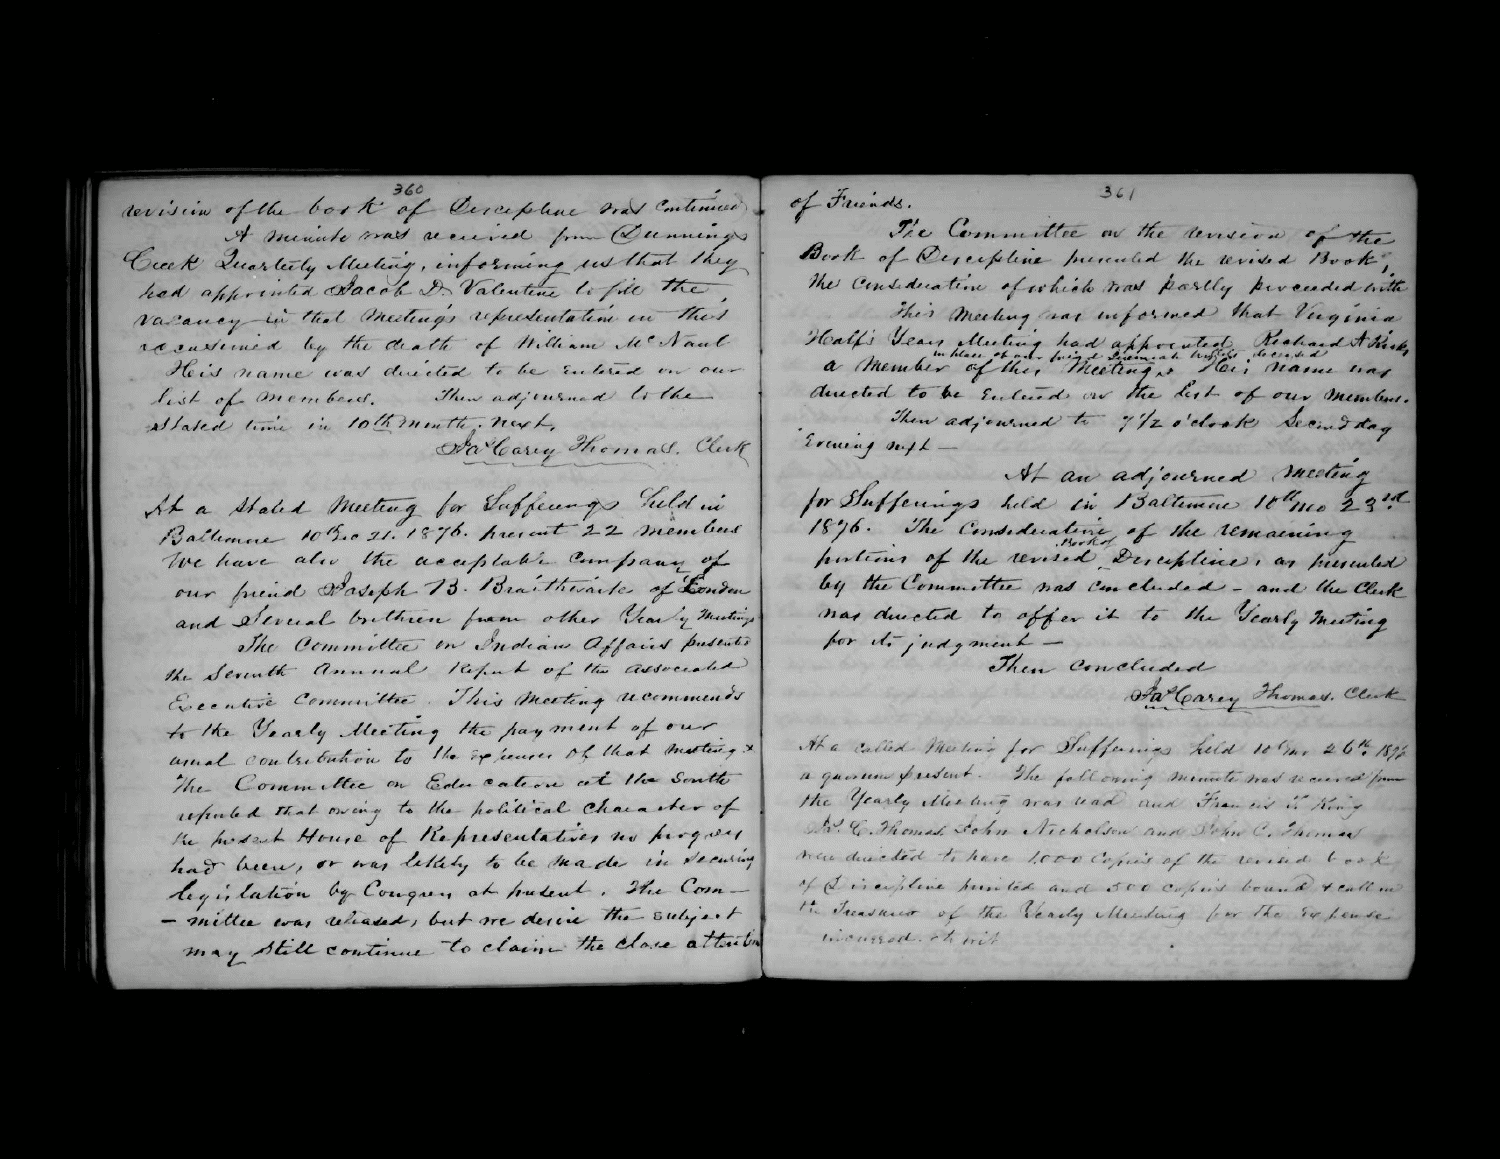 360
revision of the book of Discipline was continued
A minute was received from Dunnings
Creek Quarterly Meeting, informing us that they
had appointed Jacob D. Valentine to fill the
vacancy in that Meeting's representation in this
occasioned by the death of William McNaul
His name was directed to be entered on our
list of members. Then adjourned to the
Stated time in 10th month next.
Jas Carey Thomas. Clerk
At a stated Meeting for Sufferings held in
Baltimore 10th mo 21. 1876. present 22 members
We have also the acceptable company of
our friend Joseph B. Braithwaite of London
and Several brethren from other Yearly Meetings
The Committee on Indian Affairs presented
the Seventh Annual Report of the associated
Executive Committee. This Meeting recommends
to the Yearly Meeting the payment of our
usual contribution to the expenses of that meeting
The Committee on Education at the South
reported that owing to the political character of
the present House of Representatives no progress
had been, or was likely to be made in securing
legislation by Congress at present. The Com-
-mittee was released, but we desire the subject
may still continue to claim the close attention
361
of Friends.
The Committee on the revision of the
Book of Discipline presented the revised Book,
the consideration of which was partly proceeded with
This Meeting was informed that Virginia
Half's Years Meeting had appointed Richard A
in place of our friend Jeremiah deceased
a member of this Meeting. His name was
directed to be entered on the list of our members.
Then adjourned to 7 1/2 o'clock Second day
Evening next -
At an adjourned Meeting
for Sufferings held in Baltimore 10th mo 23rd
1876. The Consideration of the remaining
Book of
portions of the revised Discipline, as presented
by the Committee was concluded - and the Clerk
was directed to offer it to the Yearly Meeting
for its judgment -
Then concluded
Jas Carey Thomas. Clerk
At a called Meeting for Sufferings held 10th mo 26th 1876
a quorum present. The following minute was received from
the Yearly Meeting was read and Francis T. King
Jas. C. Thomas, John Nicholson and John C. Thomas
were directed to have 1,000 Copies of the revised book
of Discipline printed and 500 copies bound & call on
the Treasurer of the Yearly Meeting for the expense
incurred.